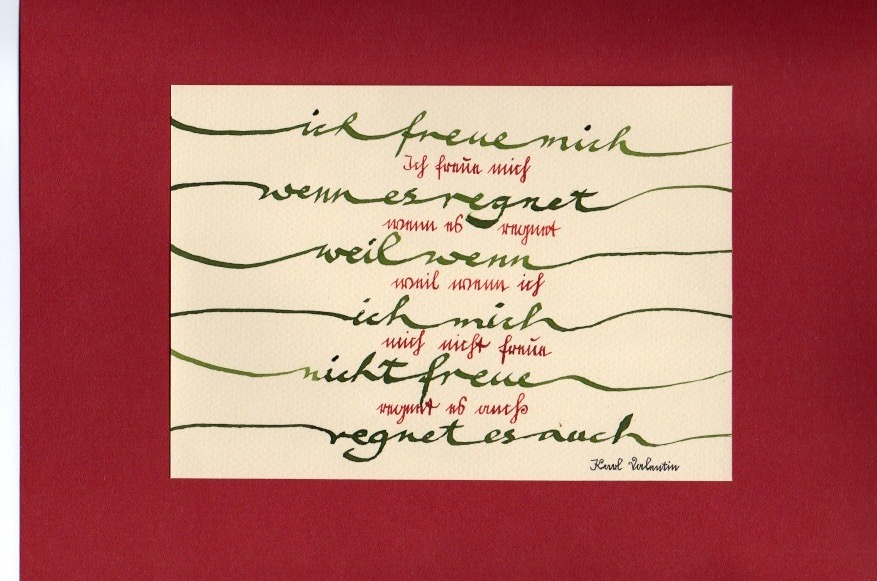 ich freue mich
Ich freue mich
wenn es regnet
wenn es regnet
weil wenn
weil wenn ich
ich mich
mich nicht freue
nicht freue
regnet es auch
regnet es auch
Karl Valentin